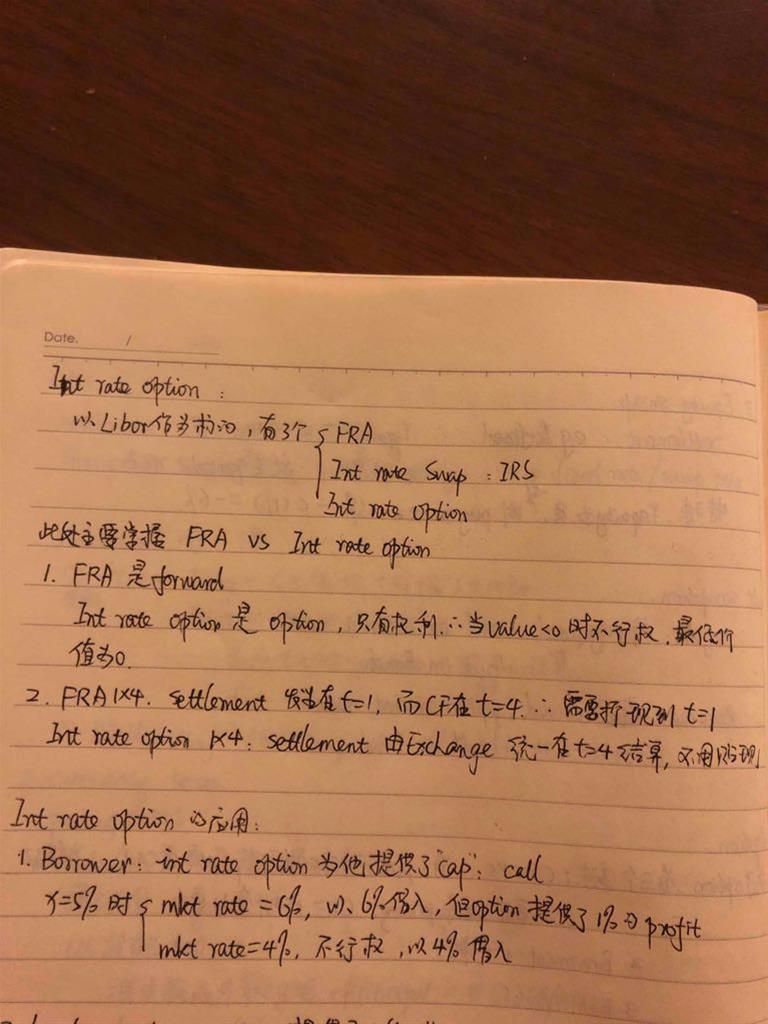 Date. /
Int rate option :
以 Libor 作为标的,有3个 { FRA
Int rate Swap : IRS
Int rate Option
此处主要掌握 FRA vs Int rate option
1. FRA 是 forward
Int rate option 是 option, 只有权利. ∴ 当 value<0 时不行权. 最低价
值为0.
2. FRA 1×4. settlement 发生在 t=1, 而 CF 在 t=4. ∴ 需要折现到 t=1
Int rate option 1×4: settlement 由 Exchange 统一在 t=4 结算, 不用折现
Int rate option 的应用:
1. Borrower: int rate option 为他提供了"cap": call
X=5% 时 { mkt rate = 6%, 以 6% 借入, 但 option 提供了 1% 的 profit
mkt rate=4%, 不行权, 以 4% 借入
提供了